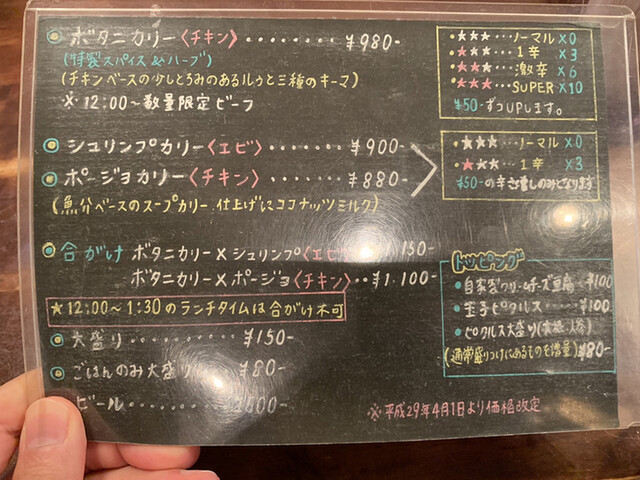 ◎ボタニカリー〈チキン〉‥‥‥‥ ¥980-
(特製スパイス&ハーブ)
(チキンベースの少しとろみのあるルゥと三種のキーマ)
※12:00~数量限定ビーフ
・★★★‥‥ノーマル×0
・★★★‥‥1辛×3
・★★★‥‥激辛×6
・★★★‥‥SUPER×10
¥50-ずつUPします。
◎シュリンプカリー〈エビ〉‥‥‥ ¥900-
◎ポージョカリー〈チキン〉‥‥‥ ¥880-
(魚介ベースのスープカリー 仕上げにココナッツミルク)
・★★★‥‥ノーマル×0
・★★★‥‥1辛×3
¥50-の辛さ増しのみとなります
◎合がけ ボタニカリー×シュリンプ〈エビ
1.130-
ボタニカリー×ポージョ〈チキン〉‥¥1.100-
★12:00~1:30のランチタイムは合がけ不可
◎大盛り‥‥‥‥ ¥150-
◎ごはんのみ大盛り ¥80-
ビール‥‥‥‥
トッピング
・自家製クリームチーズ豆腐 ¥100
・玉子ピクルス‥‥‥¥100
・ピクルス大盛り
(通常盛りつけにあるものを増量)¥80-
※平成29年4月1日より価格改定